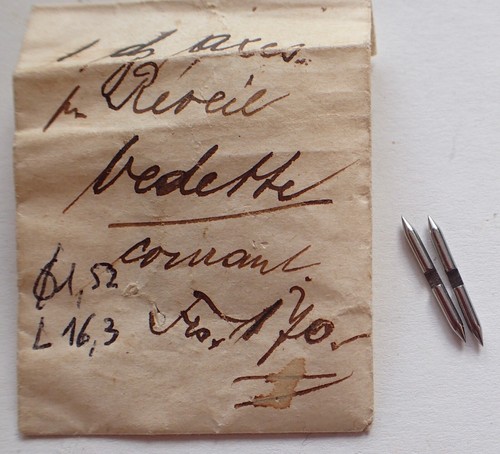 1 dz axes
pr Réveil
Vedette
courant.
Ø1,52
L 16,3
Frs. 1.70.-